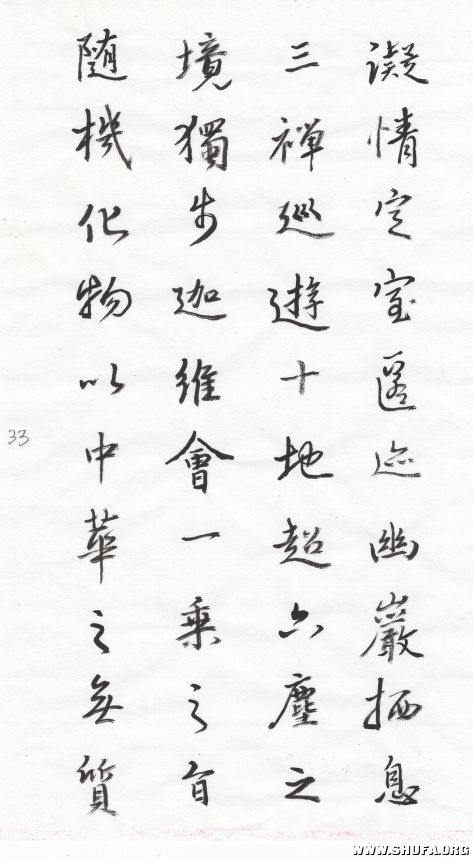 凝情定室匿迹幽巖栖息
三禪巡遊十地超六塵之
境獨步迦維會一乘之旨
隨機化物以中華之無質
33
WWW.SHUFA.ORG